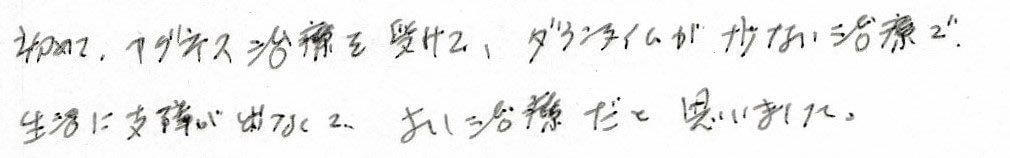 初めて、アグネス治療を受けて、ダウンタイムが少ない治療で、
生活に支障が出なくて、よい治療だと思いました。